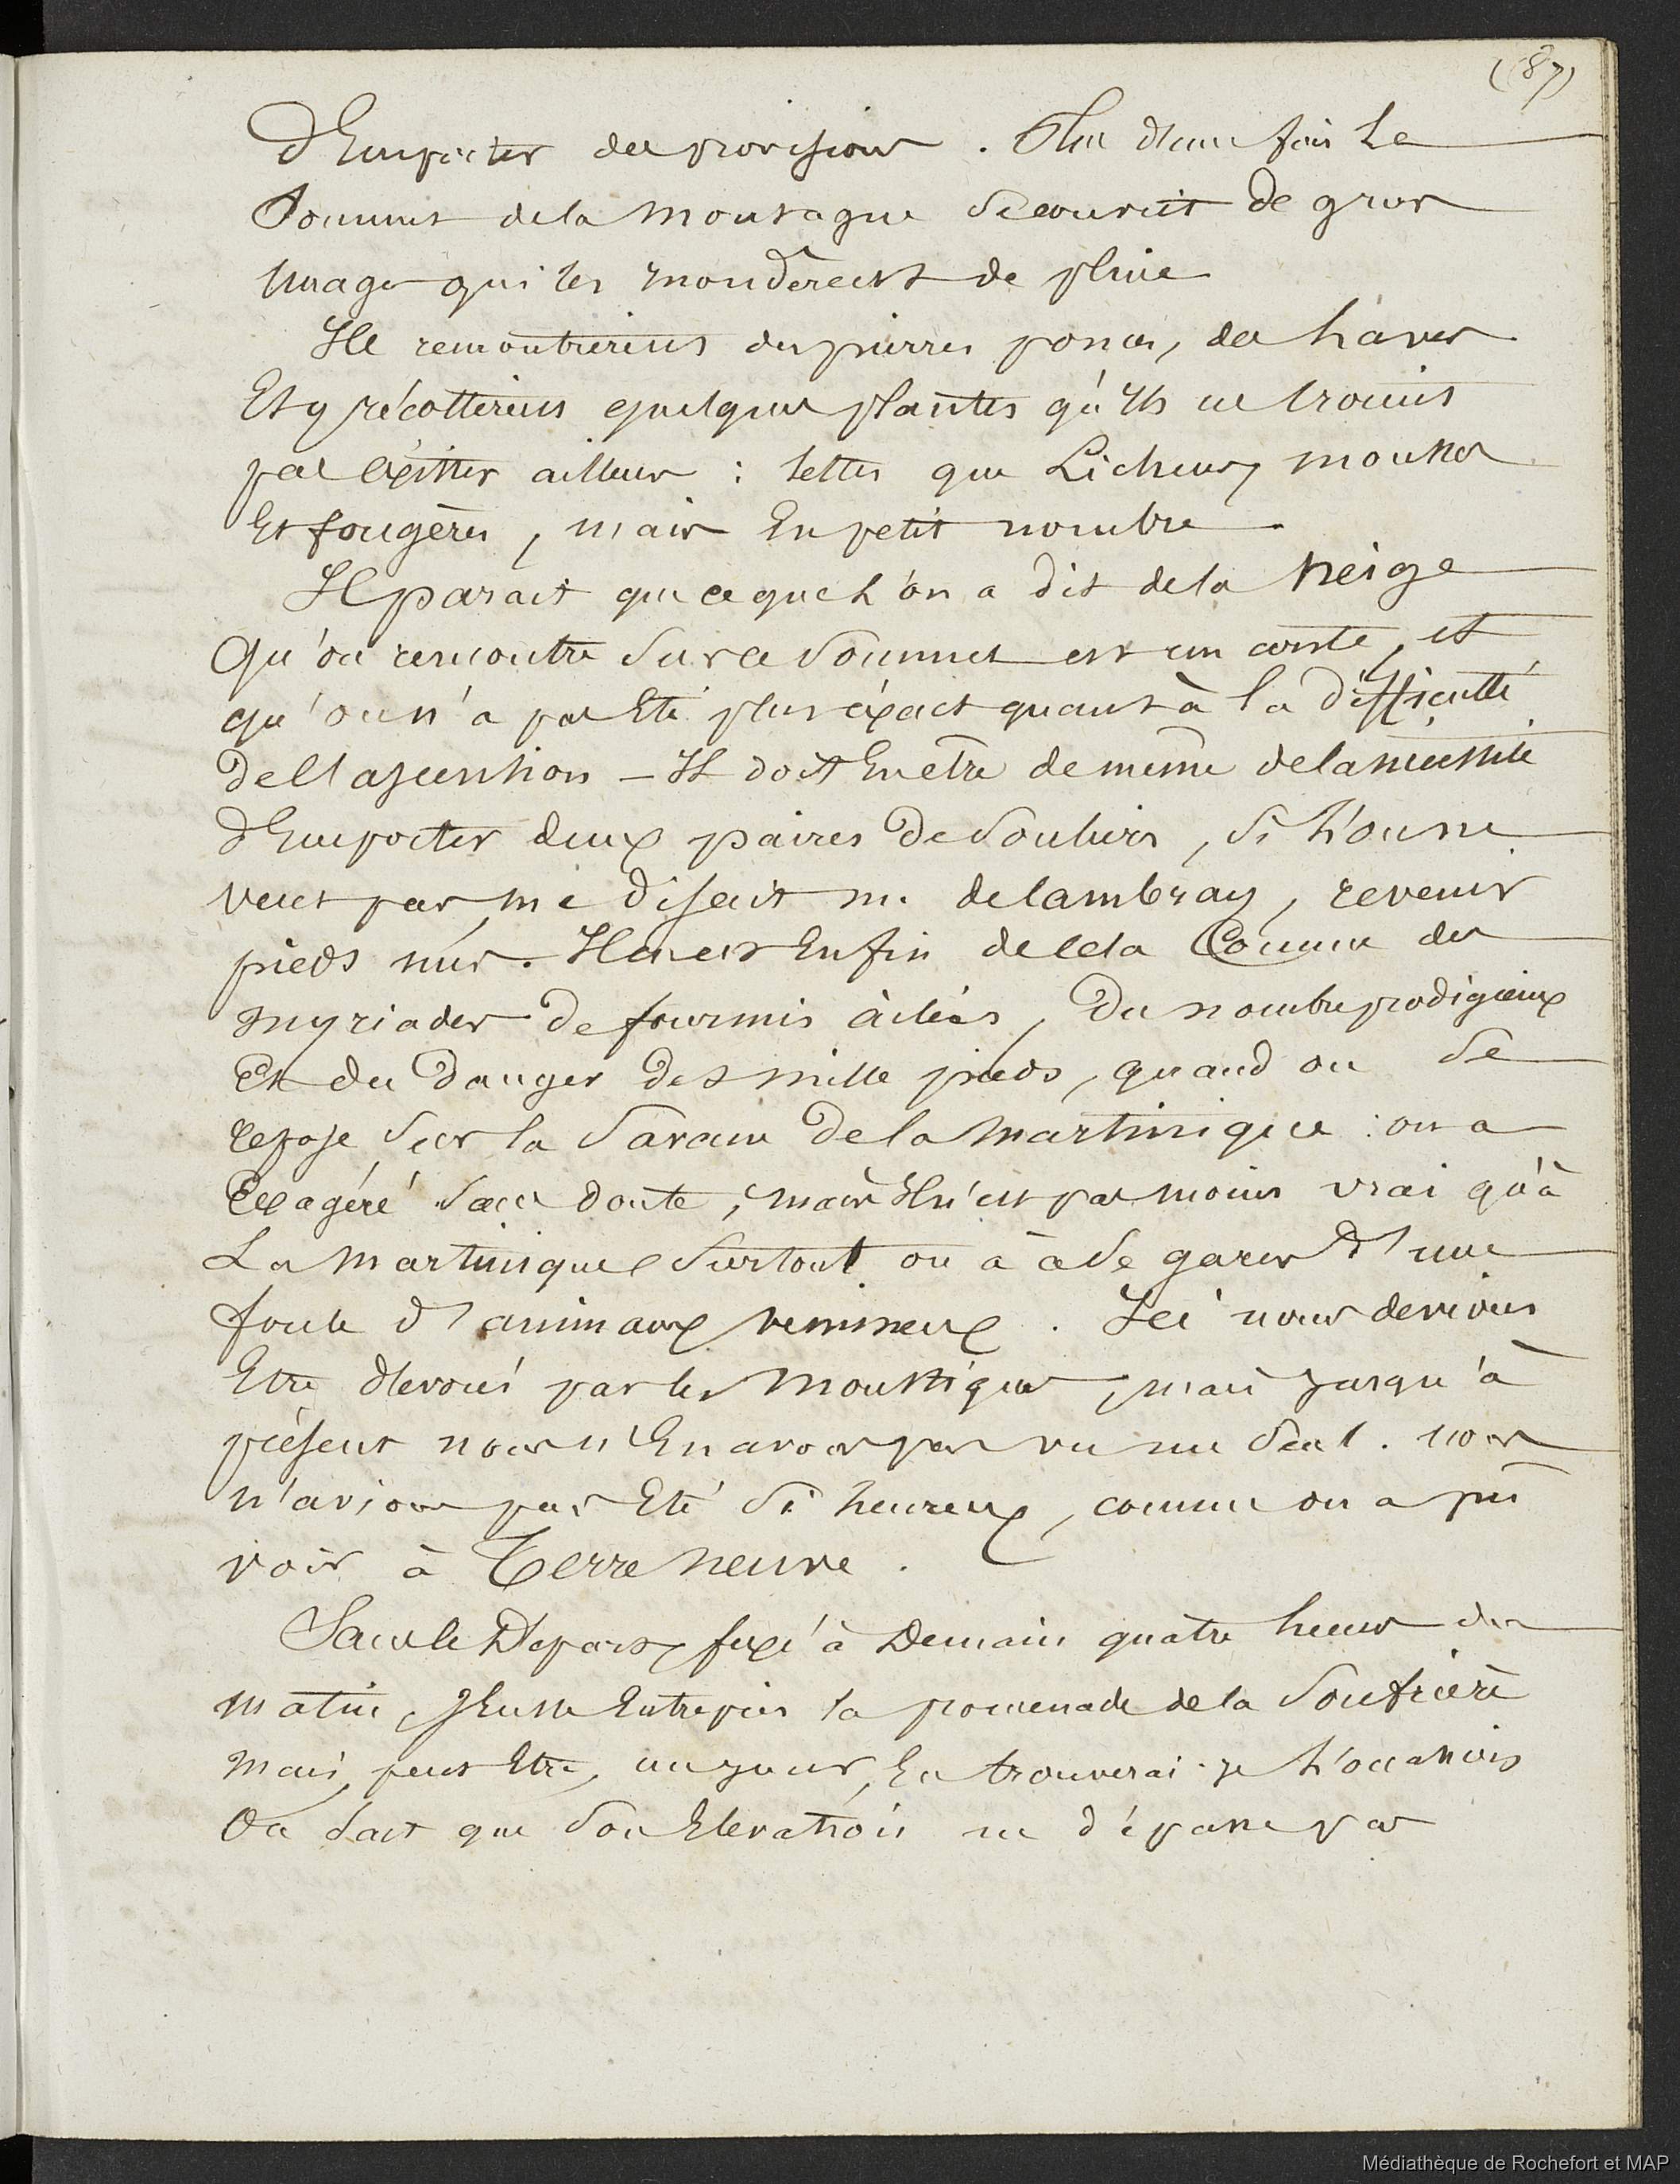 (87)
d'Emporter des provisions. Plus d'une fois Le
Sommet de la montagne Se couvrit de gros
Nuages qui les inondèrent de pluie
Ils rencontrèrent des pierres ponces, des laves
Et y récoltèrent quelques plantes qu'ils ne trouvèrent
pas éxister ailleurs : telles que Lichens, mousses
Et fougères, mais En petit nombre.
Il parait que ce que L'on a dit de la Neige
Qu'on rencontre Sur ce Sommet est un conte, et
qu'on n'a pas Eté plus éxact quant à la difficulté
De l'ascention – Il doit En être de même de la nécessité
d'Emporter deux paires De Souliers, Si L'on ne
veut pas, me disait m. delambray, revenir
pieds nus. Il en est Enfin de cela Comme des
myriades De fourmis ailées, Du nombre prodigieux
Et du Danger Des mille pieds, quand on Se
repose Sur la Savane De la Martinique : on a
Exagéré Sans doute, mais Il n'est pas moins vrai qu'à
La Martinique Surtout on a à Se garer D'une
foule D'animaux venimeux. Ici nous devions
Etre dévorés par les Moustiques, mais jusqu'à
présent nous n'En avons pas vu un Seul. nous
n'avions pas Eté Si heureux, comme on a pu
voir à Terre Neuve.
Sans le Départ, fixé à Demain quatre heures du
matin, J'Eusse Entrepris la promenade de la Soufrière
Mais, peut Etre, un jour, En trouverai-je L'occasion
On Sait que Son Elévation ne dépasse pas
Médiathèque de Rochefort et MAP